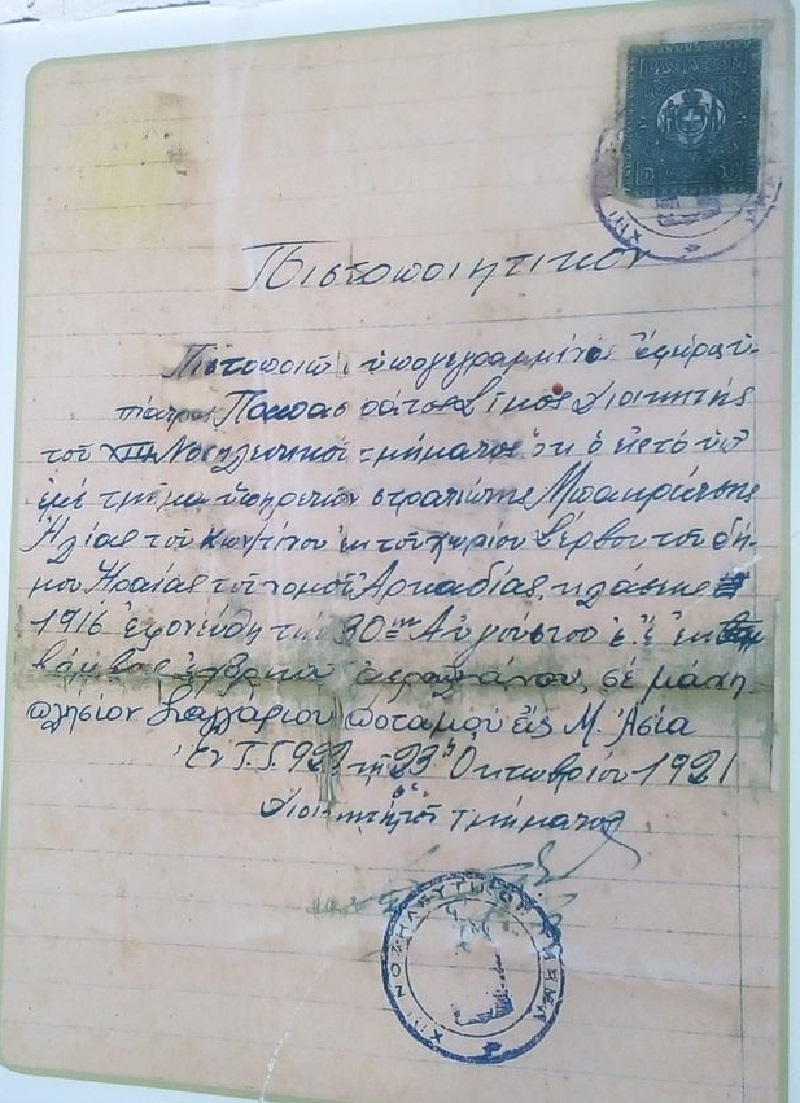 Πιστοποιητικόν
Πιστοποιῶ ὁ ὑπογεγραμμένος ἔφεδρος ὑ-
πίατρος Διοικητής
τοῦ XIII Νοσηλευτικοῦ τμήματος ὅτι ὁ εἰς τό ὑπ'
ἐμέ τμῆμα ὑπηρετῶν στρατιώτης
Ἠλίας τοῦ Κων/τίνου ἐκ τοῦ χωρίου Βέρβου τοῦ δή-
μου Ἡραίας τοῦ νομοῦ Ἀρκαδίας, κλάσεως
1916 ἐφονεύθη τήν 30ην Αὐγούστου ἐ.ἔ. ἐκ
βόμβας ἐχθρικοῦ ἀεροπλάνου, σέ μάχη
πλησίον Σαγγάριου ποταμοῦ εἰς Μ. Ἀσία
Ἐν Τ.Τ. 922 τῇ 23ῃ Ὀκτωβρίου 1921
Ὁ
Διοικητής τοῦ τμήματος
XIII ΝΟΣΗΛΕΥΤΙΚΟΝ ΤΜΗΜΑ